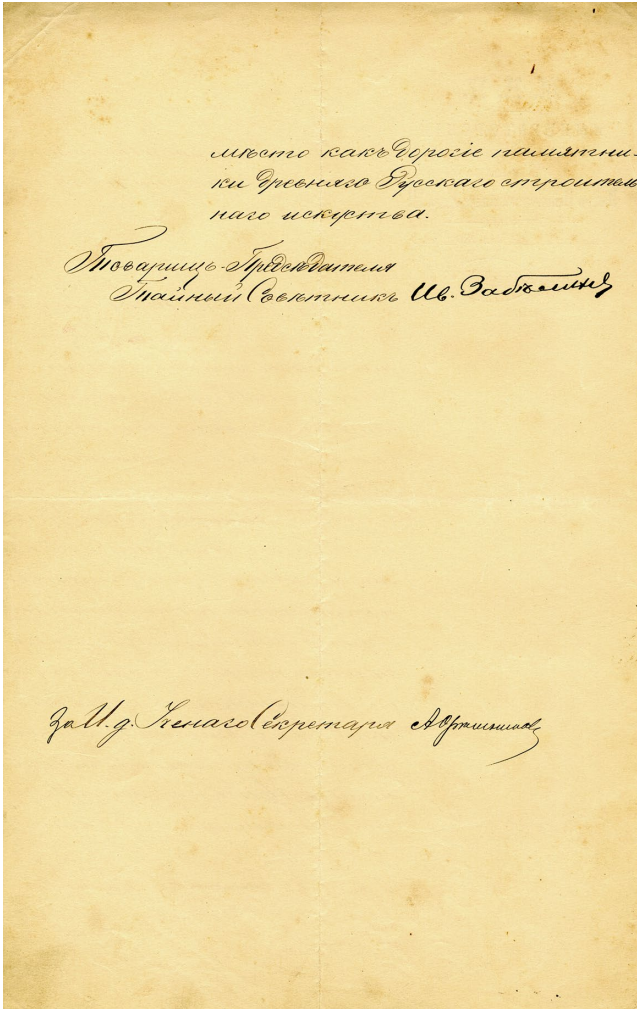 мѣсто какъ дорогіе памятни-
ки древняго Русскаго строитель
наго искуства.
Товарищъ-Предсѣдателя
Тайный Совѣтникъ Ив. Забѣлинъ
За И. д. Ученаго Секретаря А Орѣшниковъ